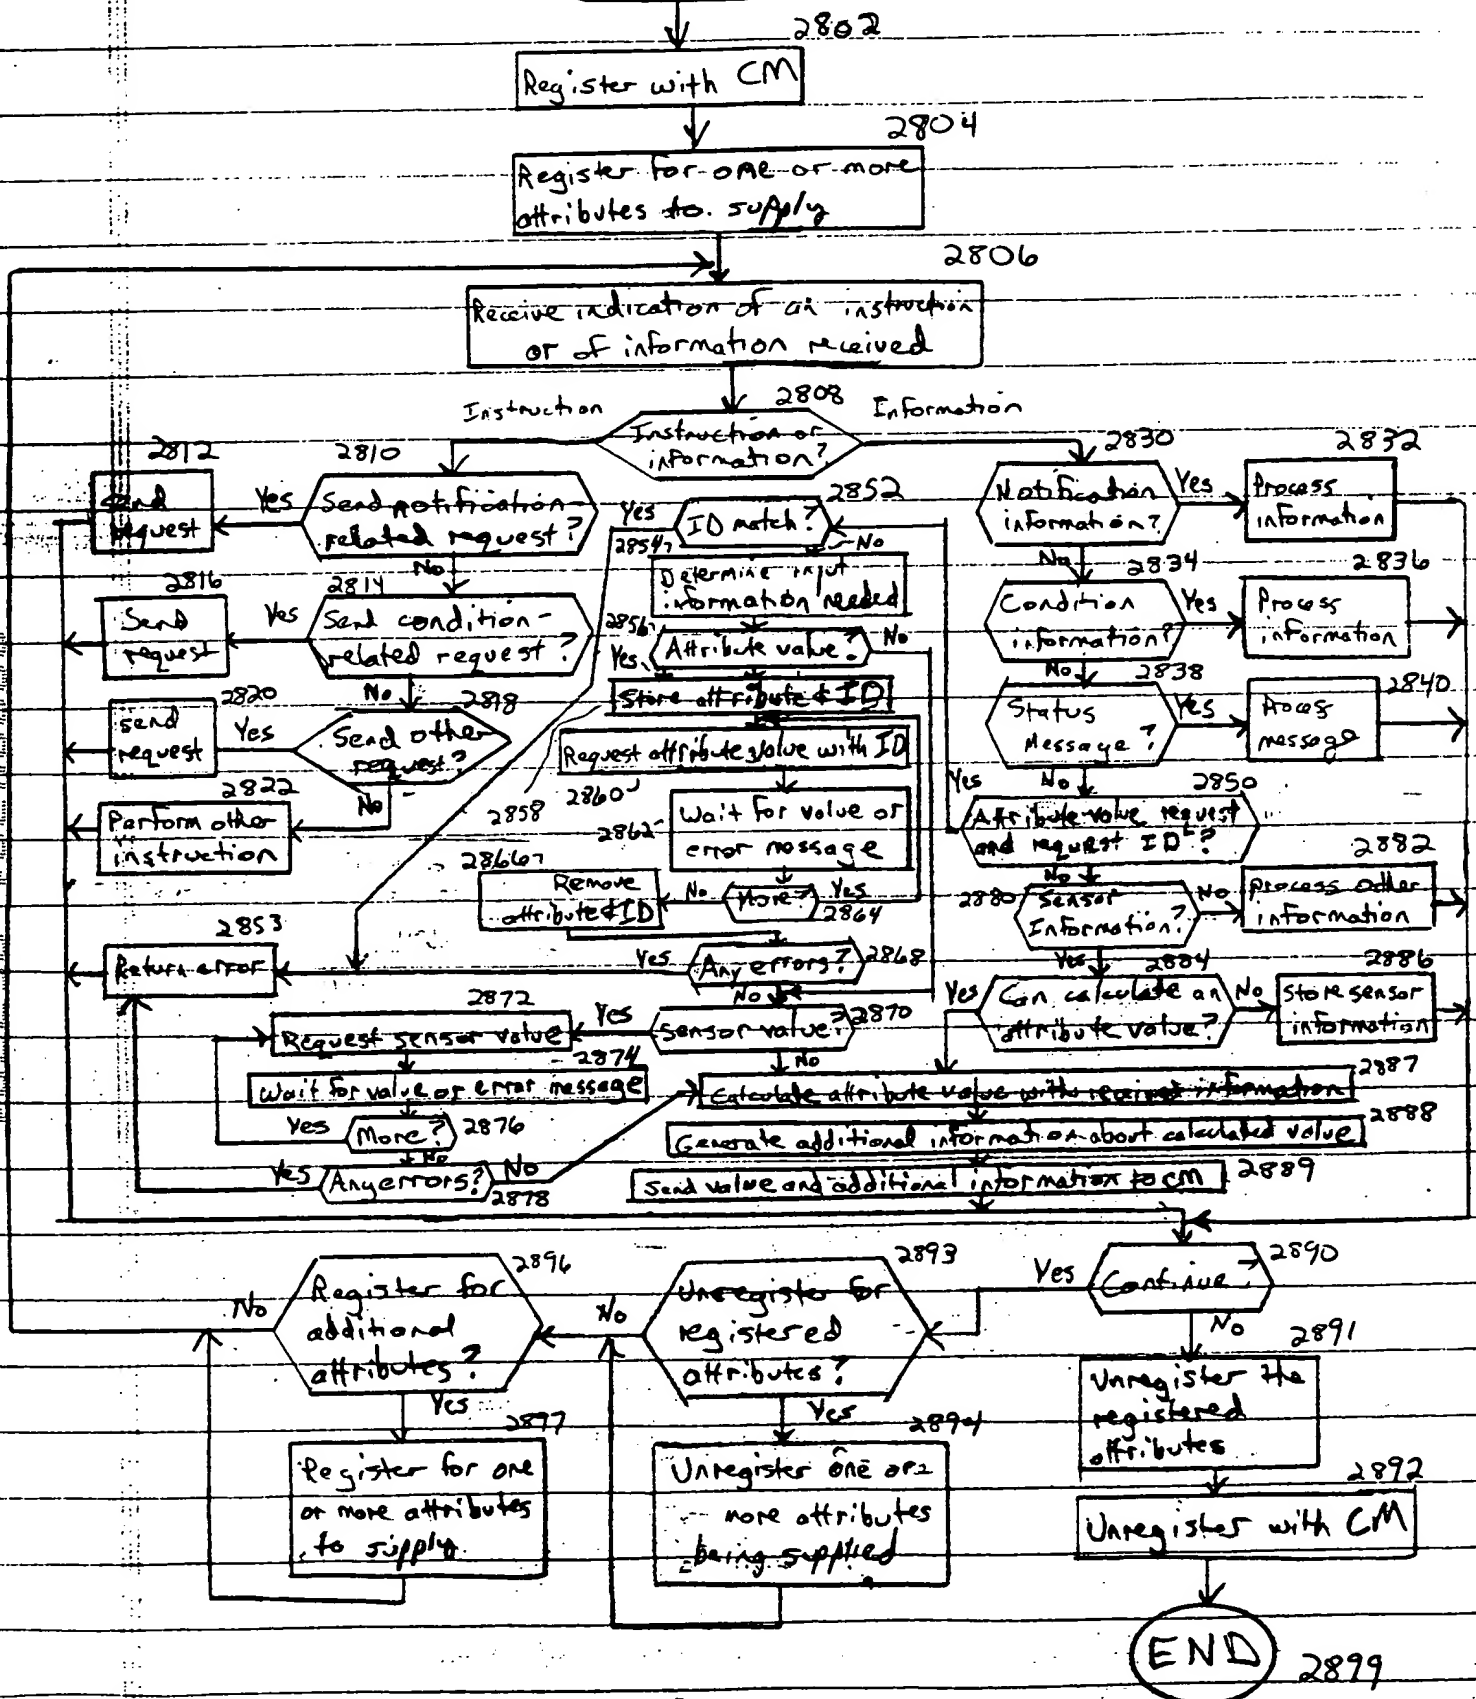 2802
Register with CM
2804
Register for one or more
attributes to supply
2806
Receive indication of an instruction
or of information received
2808
Instruction
Information
Instruction or
information?
2812
Send
request
Yes
2810
Send notification-
related request?
No
2816
Send
request
Yes
2814
Send condition-
related request?
No
2820
Send
request
Yes
2818
Send other
request?
No
2822
Perform other
instruction
2852
ID match?
Yes
No
2854
Determine input
information needed
2856
Attribute value?
No
Yes
Store attribute & ID
2858
Request attribute value with ID
2860
Wait for value or
error message
2862
More?
Yes
No
2864
2866
Remove
attribute & ID
Any errors?
2868
Yes
No
2853
Return error
Sensor value?
2870
Yes
No
2872
Request sensor value
2874
Wait for value or error message
More?
2876
Yes
No
Any errors?
2878
Yes
No
2830
Notification
information?
Yes
No
2832
Process
information
2834
Condition
information?
Yes
No
2836
Process
information
2838
Status
Message?
Yes
No
2840
Process
message
2850
Attribute value request
and request ID?
Yes
No
2880
Sensor
Information?
No
Yes
2882
Process other
information
2884
Can calculate an
attribute value?
Yes
No
2886
Store sensor
information
2887
Calculate attribute value with received information
2888
Generate additional information about calculated value
2889
Send value and additional information to CM
2890
Continue?
Yes
No
2891
Unregister the
registered
attributes
2892
Unregister with CM
2893
Unregister for
registered
attributes?
No
Yes
2894
Unregister one or
more attributes
being supplied
2896
Register for
additional
attributes?
No
Yes
2897
Register for one
or more attributes
to supply
END
2899